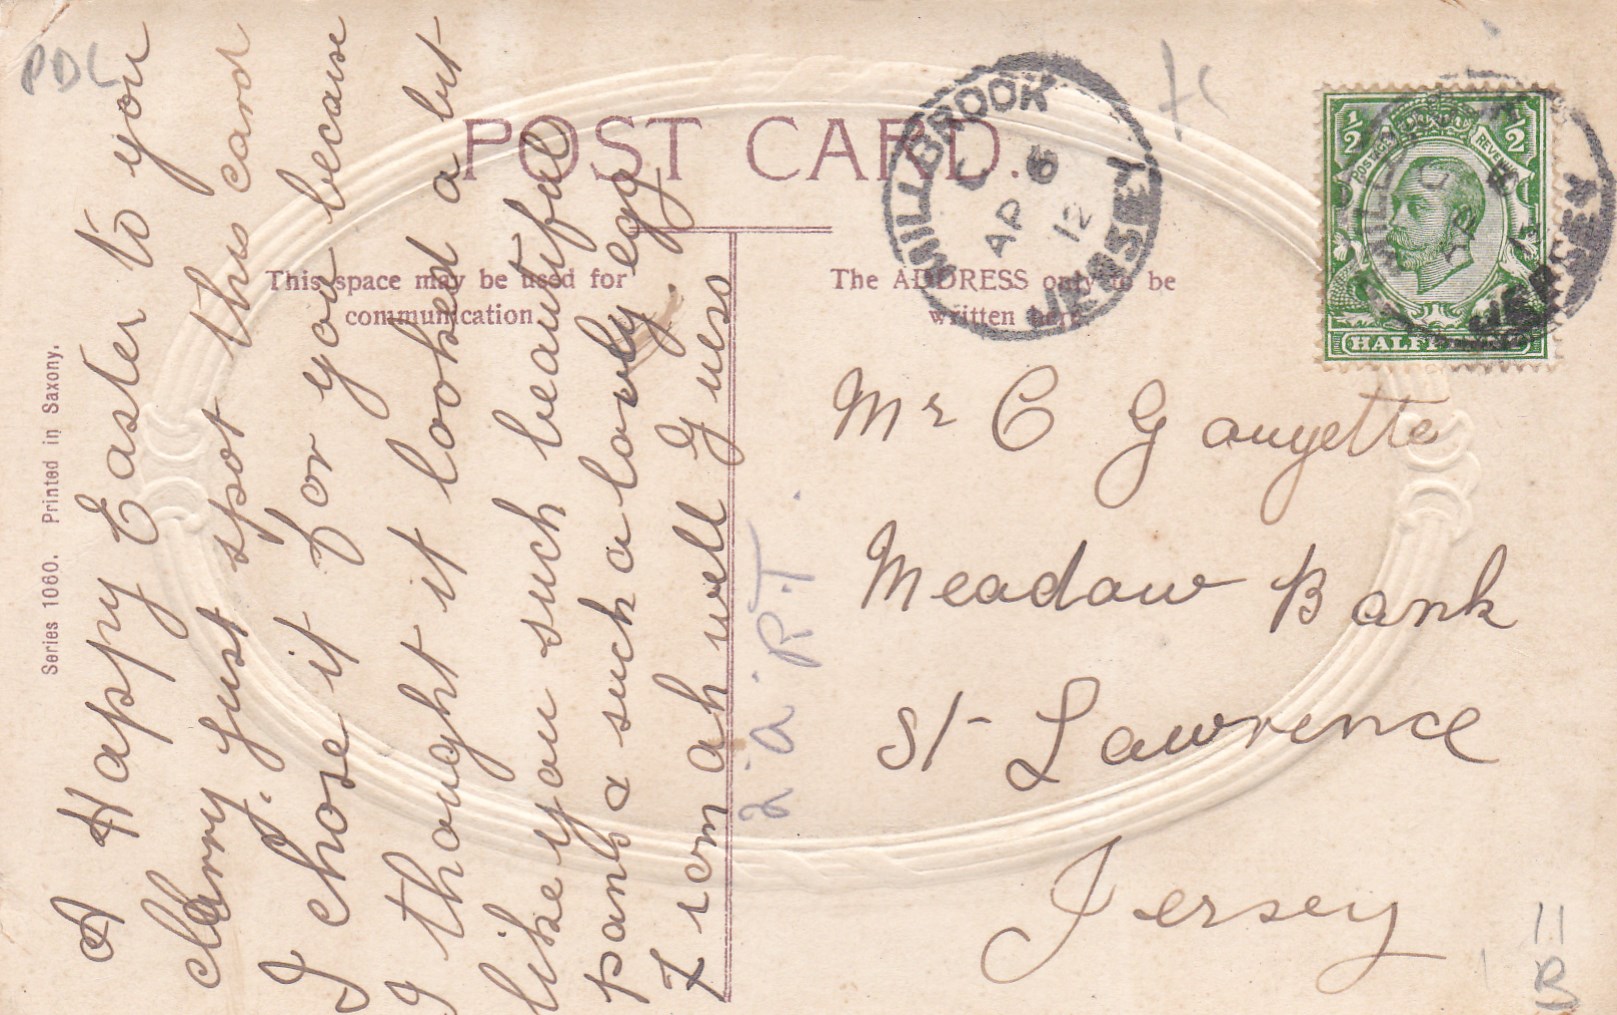 POST CARD.
This space may be used for
communication
The ADDRESS only to be
written here
Series 1060. Printed in Saxony.
A Happy Easter to you
clarry. just spot this card
I chose it for you because
I thought it looked a bit
like you such beautiful
pants & such a lovely egg.
From ah well Guess
Mr C Gauyette
Meadow Bank
St Lawrence
Jersey
MILLBROOK
AP 6
12
JERSEY
1/2 1/2
POSTAGE REVENUE
HALFPENNY
MILLBROOK
JERSEY
PDL
2 a R.T.
11
B